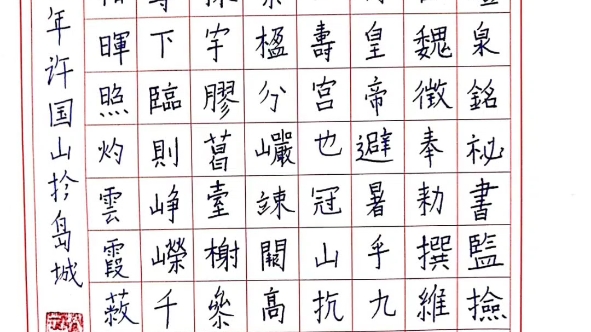 泉銘祕書監撿
魏徵奉勅撰維
皇帝避暑乎九
壽宮也冠山抗
楹分巖竦闕高
宇膠葛臺榭叅
下臨則崢嶸千
暉照灼雲霞蔽
年许国山於岛城